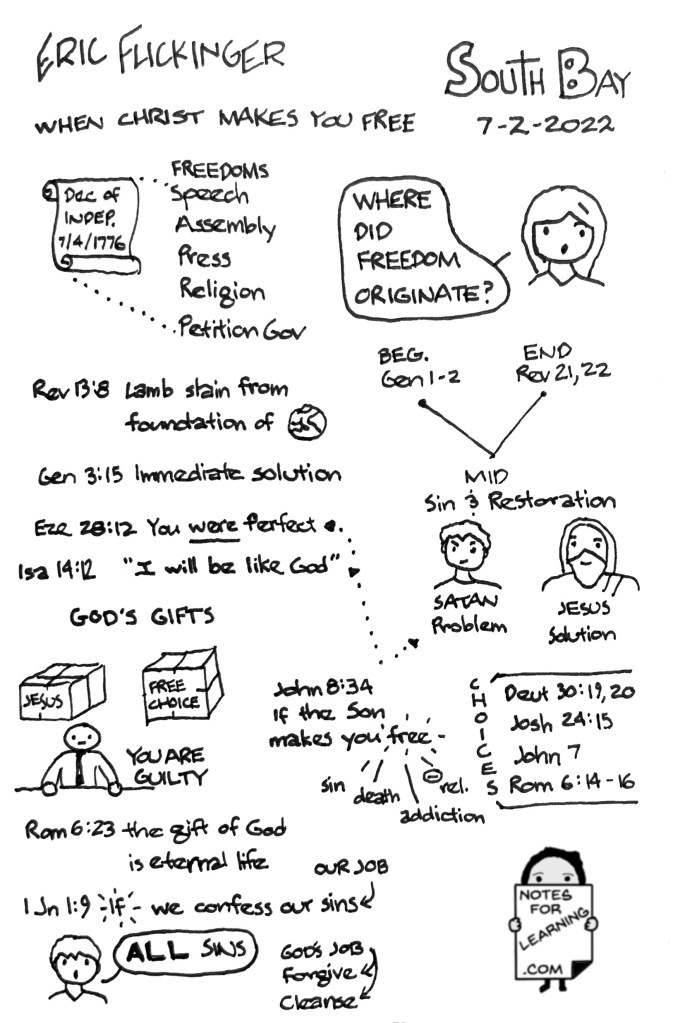 ERIC FLICKINGER
SOUTH BAY
WHEN CHRIST MAKES YOU FREE
7-2-2022
Dec of
INDEP.
7/4/1776
FREEDOMS
Speech
Assembly
Press
Religion
Petition Gov
WHERE
DID
FREEDOM
ORIGINATE?
BEG.
Gen 1-2
END
Rev 21, 22
MID
Sin & Restoration
SATAN
Problem
JESUS
Solution
Rev 13:8 Lamb slain from
foundation of
Gen 3:15 Immediate solution
Eze 28:12 You were perfect
Isa 14:12 "I will be like God"
GOD'S GIFTS
JESUS
FREE
CHOICE
YOU ARE
GUILTY
John 8:34
if the Son
makes you free
sin
death
addiction
rel.
CHOICES
Deut 30:19, 20
Josh 24:15
John 7
Rom 6:14-16
Rom 6:23 the gift of God
is eternal life
OUR JOB
1 Jn 1:9 if we confess our sins
ALL SINS
GOD'S JOB
Forgive
Cleanse
NOTES
FOR
LEARNING
.COM